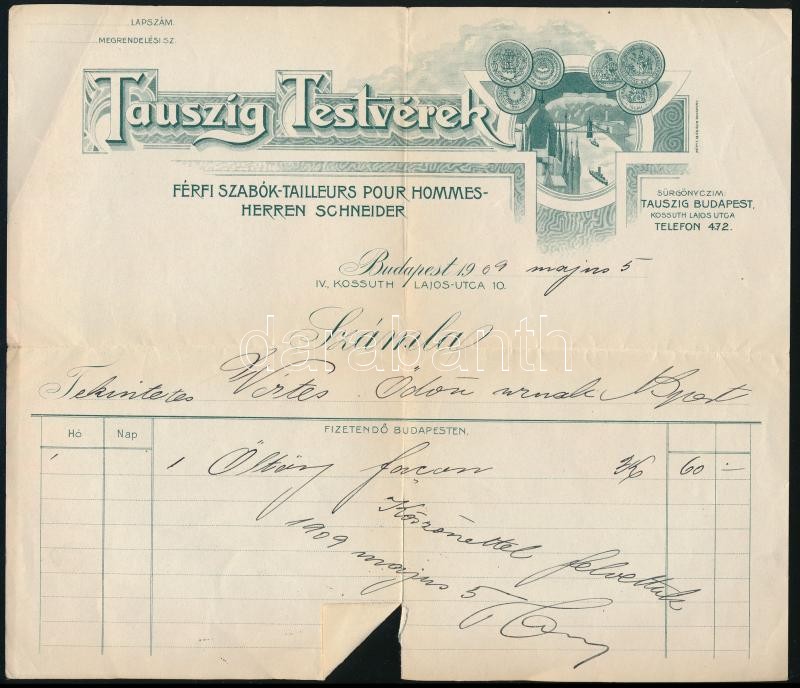 LAPSZÁM.
MEGRENDELÉSI SZ.
Tauszig Testvérek
FÉRFI SZABÓK-TAILLEURS POUR HOMMES-
HERREN SCHNEIDER
SÜRGÖNYCZIM:
TAUSZIG BUDAPEST,
KOSSUTH LAJOS UTCA
TELEFON 472.
Budapest 1909 május 5
IV., KOSSUTH LAJOS-UTCA 10.
Számla
darabanth
Tekintetes Vértes Ödön urnak
Hó Nap FIZETENDŐ BUDAPESTEN.
1 Öltöny façon K 60 :-
Köszönettel felvettük
1909 május 5